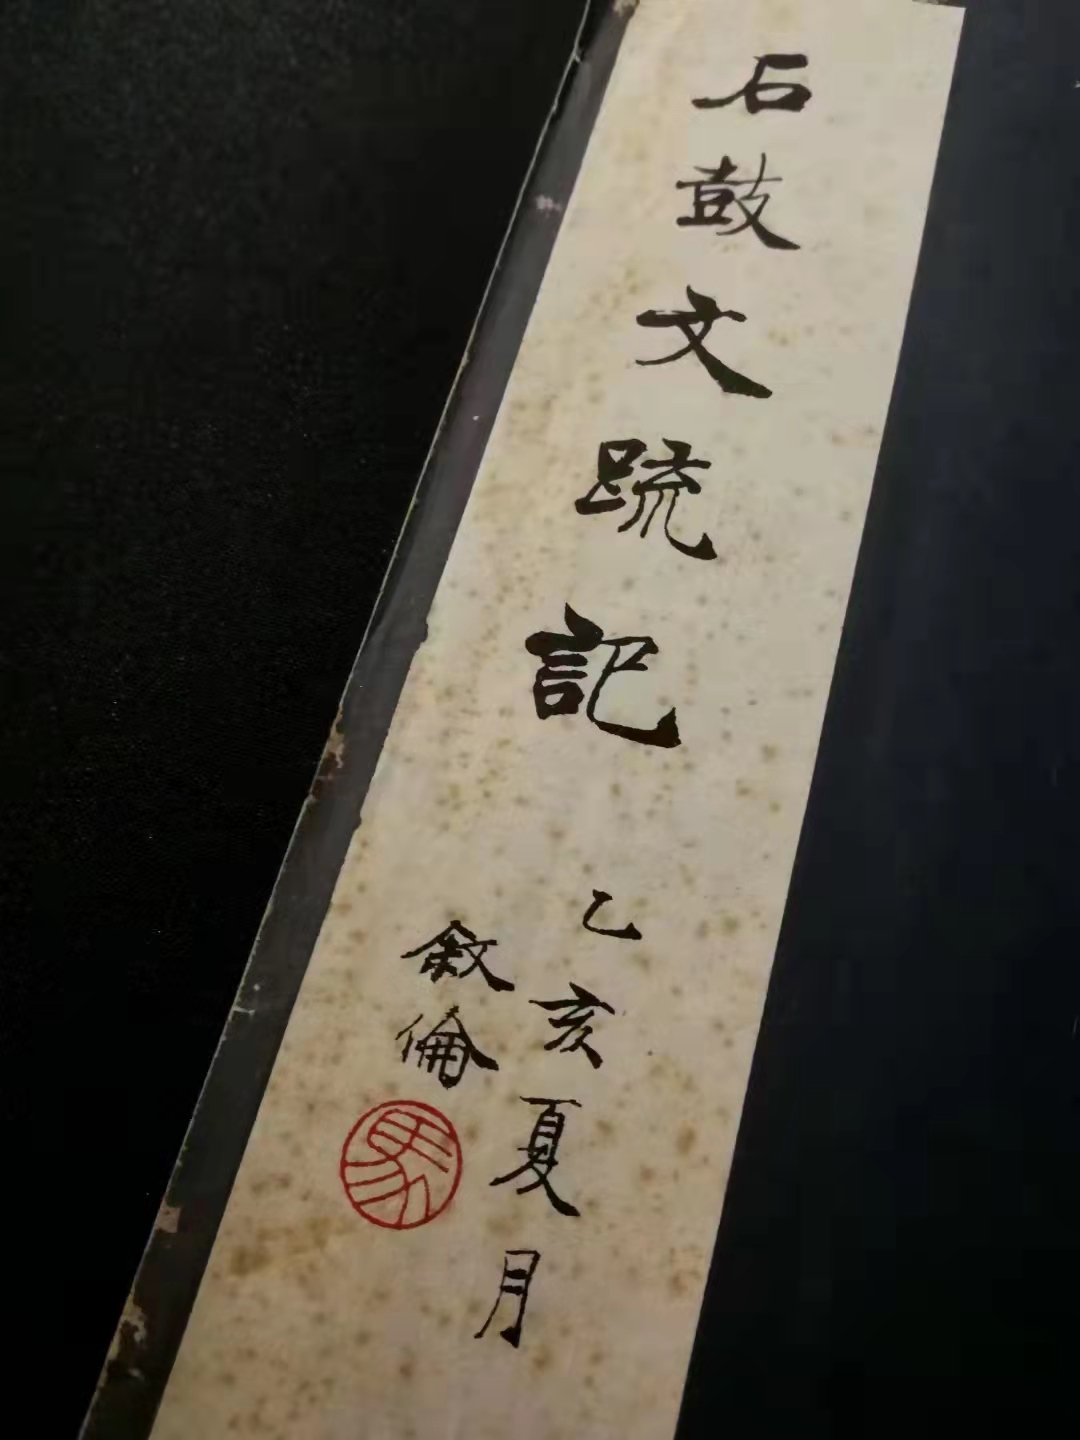 石鼓文䟽記
乙亥夏月
敘倫
馬